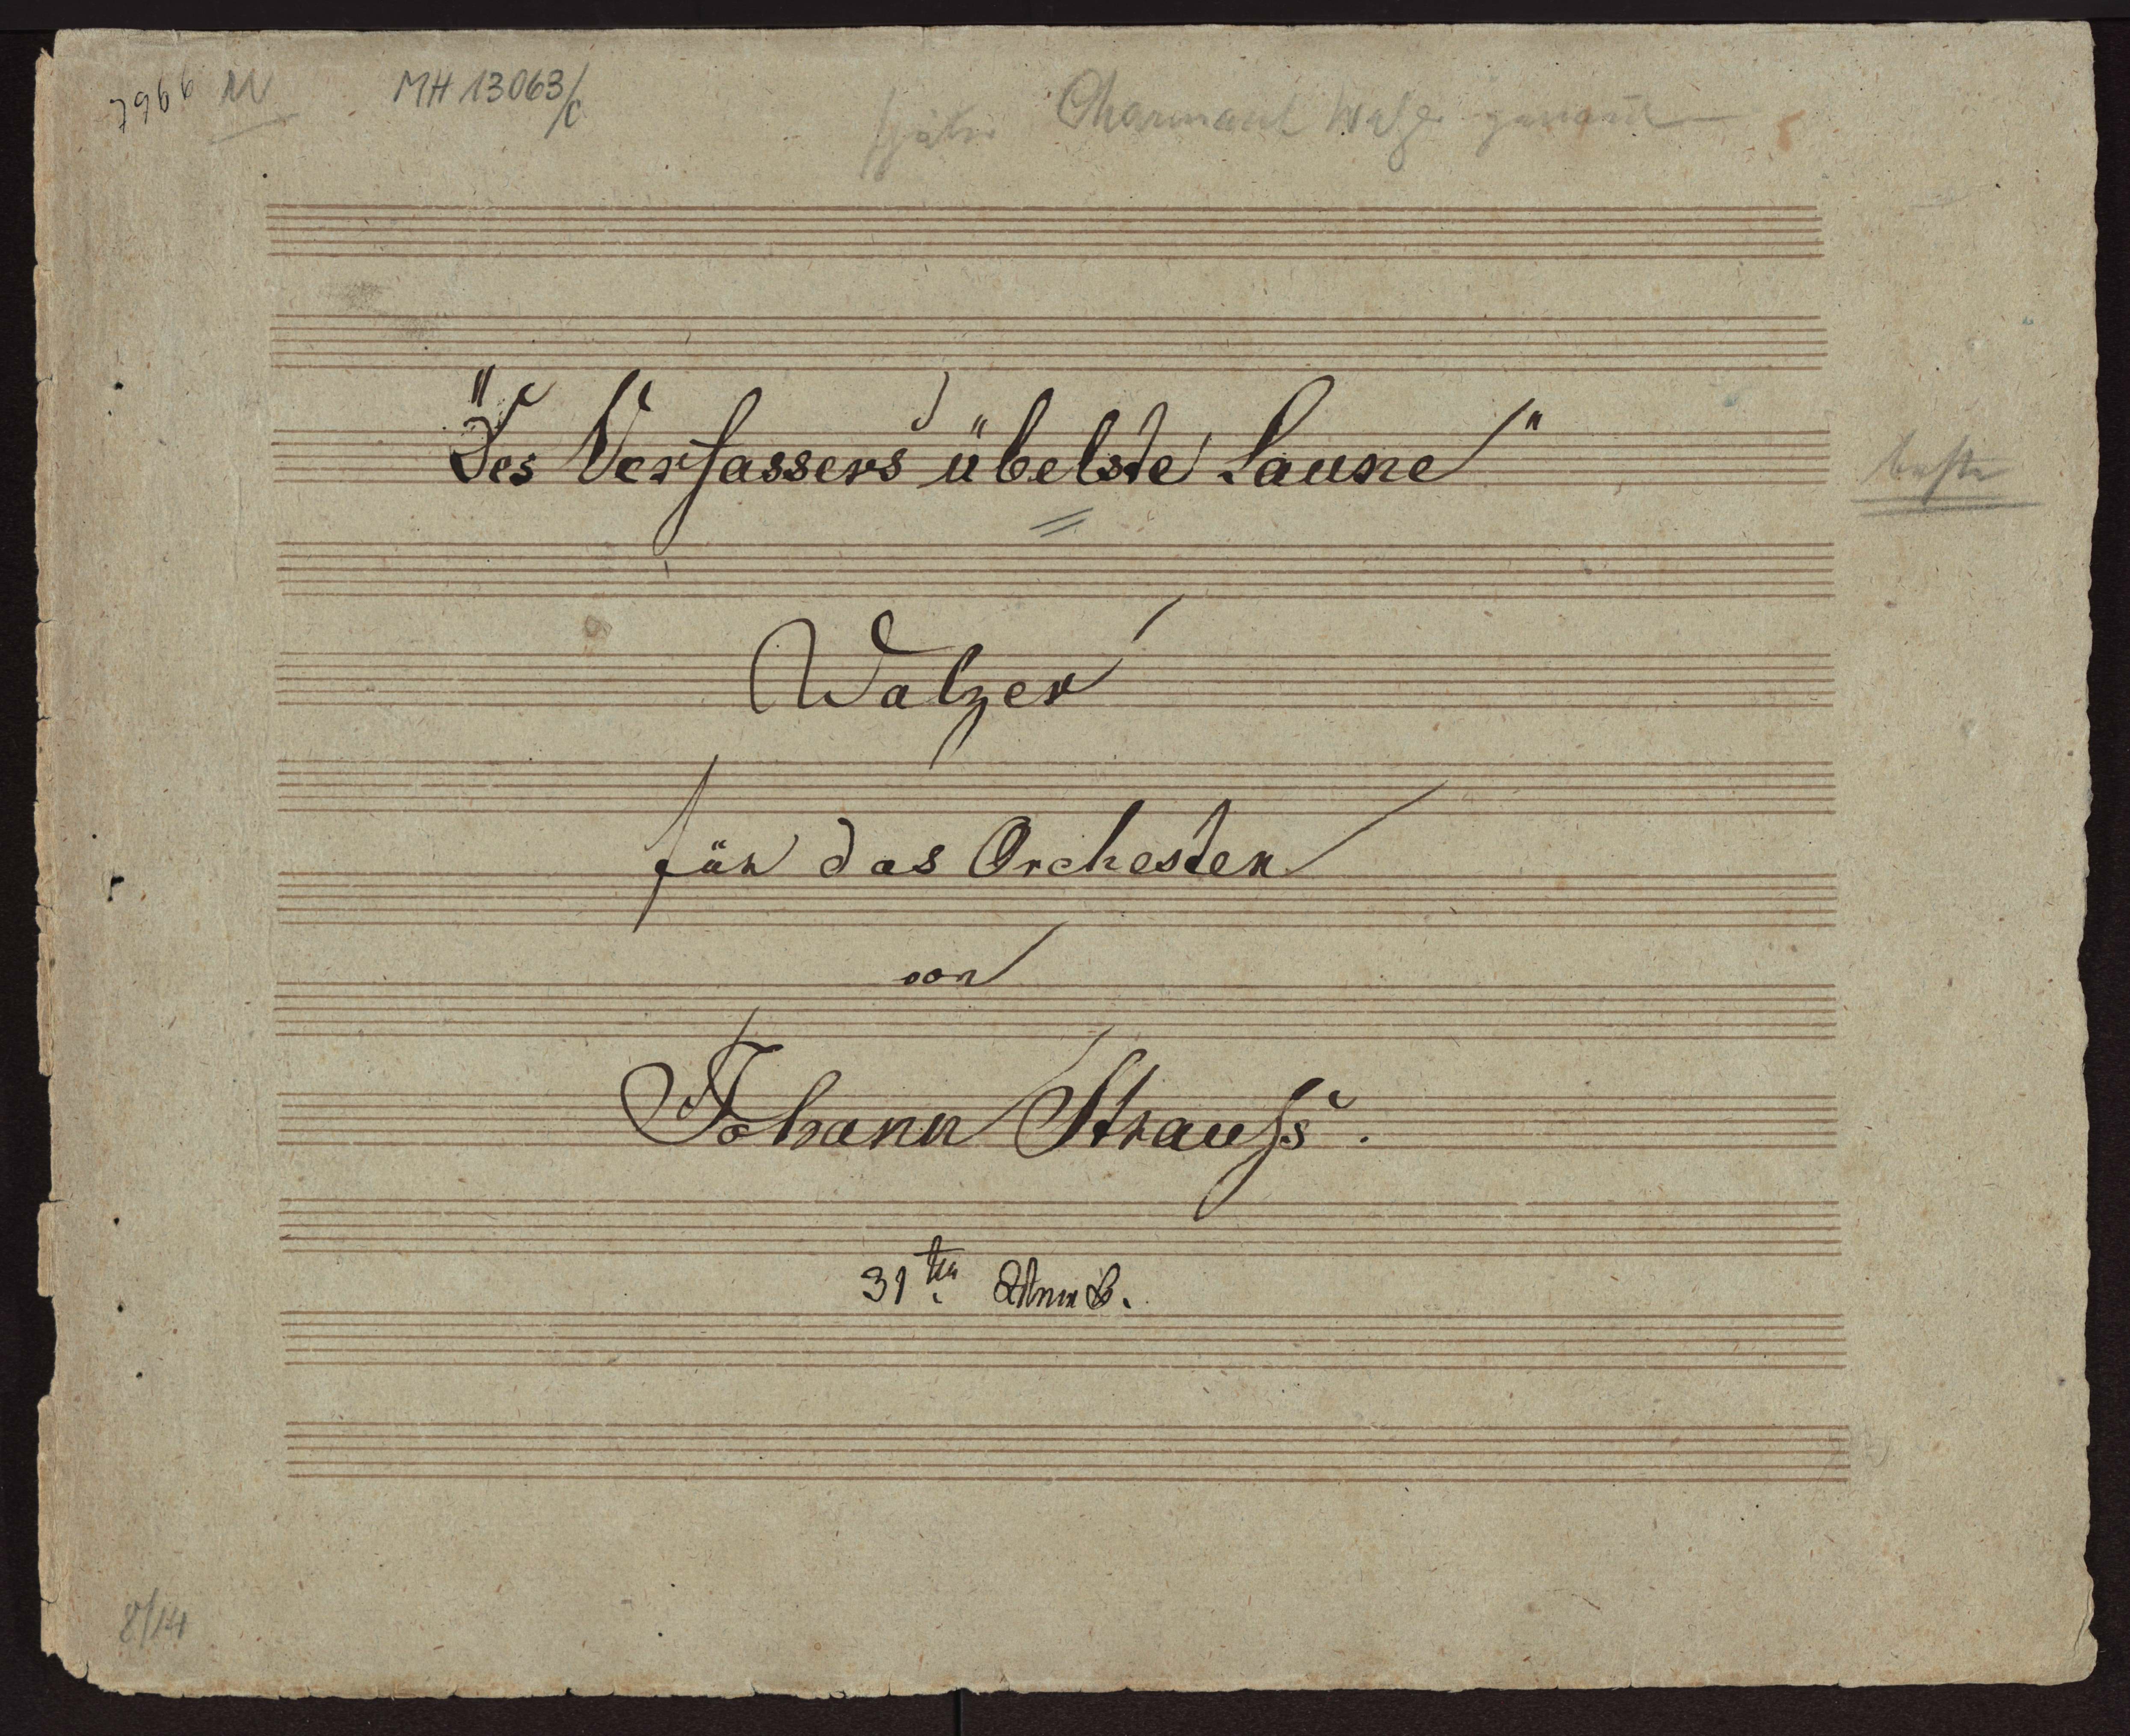 7966 M MH 13063/c
später Charmant Walzer genannt
"Des Verfassers übelste Laune"
beste
Walzer
für das Orchester
von
Johann Strauss.
31ten
8/14